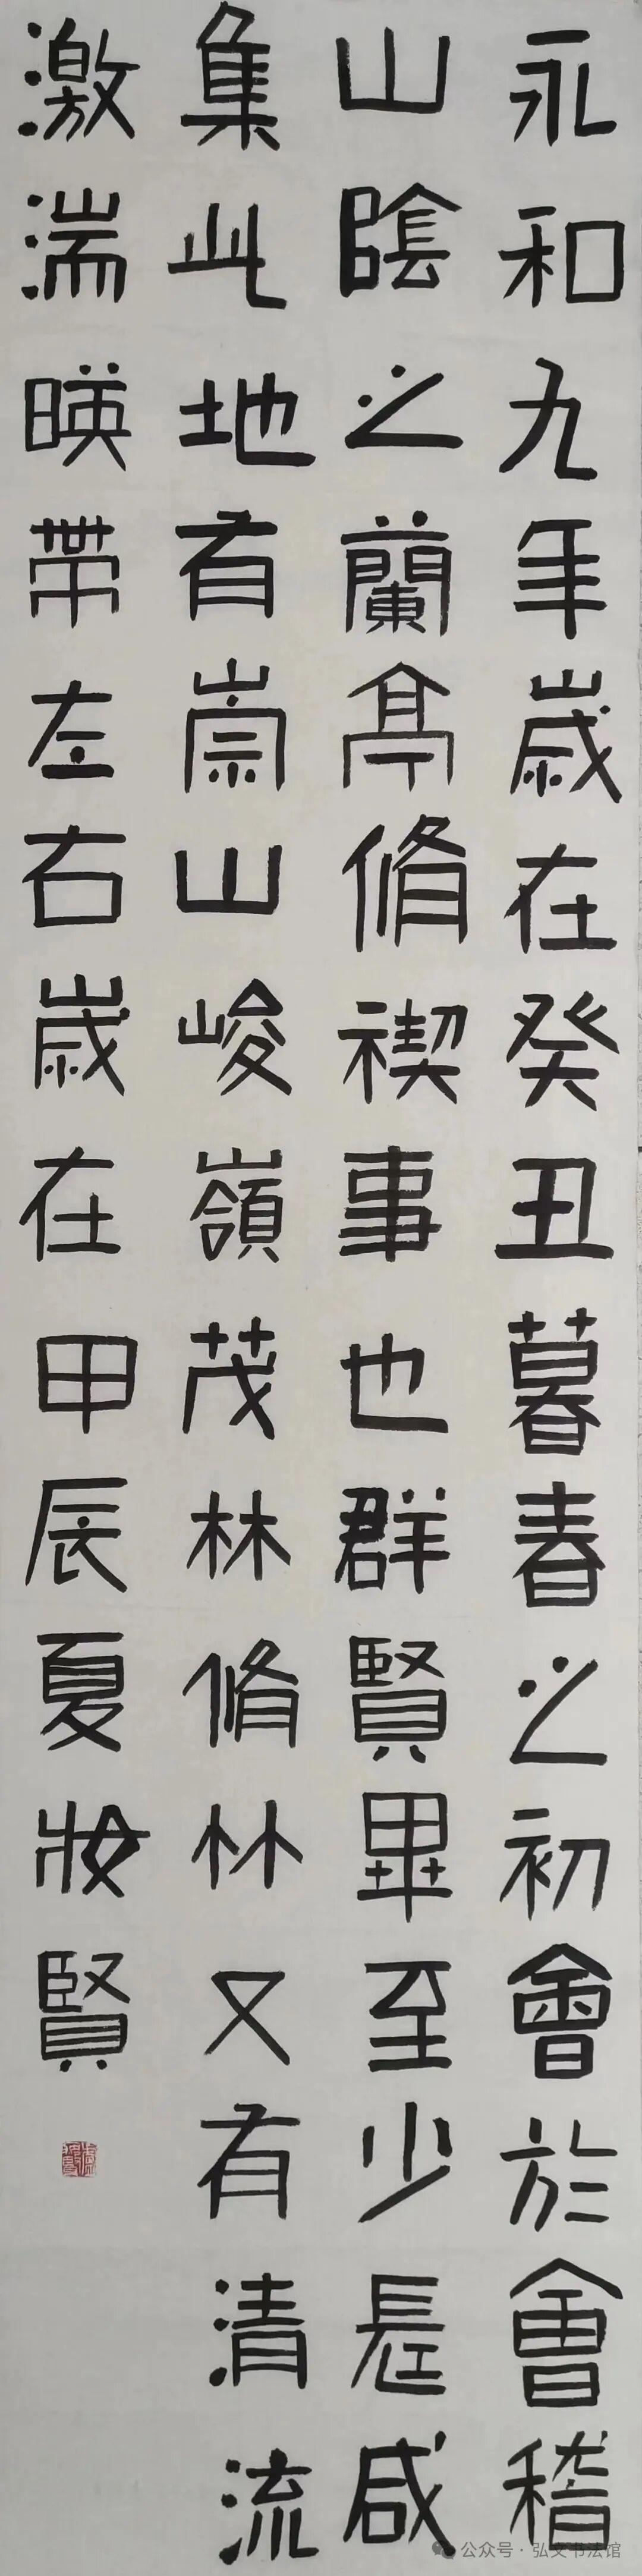 永和九年歳在癸丑暮春之初會於會稽
山陰之蘭亭脩禊事也群賢畢至少長咸
集此地有崇山峻嶺茂林脩竹又有清流
激湍暎帶左右歳在甲辰夏妝賢
公众号·弘文书法馆